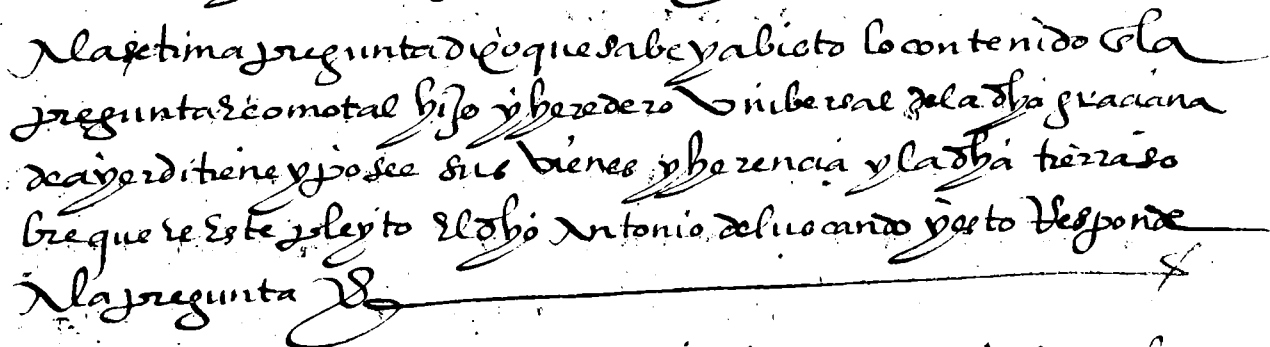 A la setima pregunta dixo que sabe y a bisto lo contenido en la
pregunta e como tal hijo y heredero vnibersal de la dha graciana
de ayerdi tiene y posee sus vienes y herencia y la dha tierra so
bre que es este pleyto el dho Antonio de luscando y esto Responde
A la pregunta